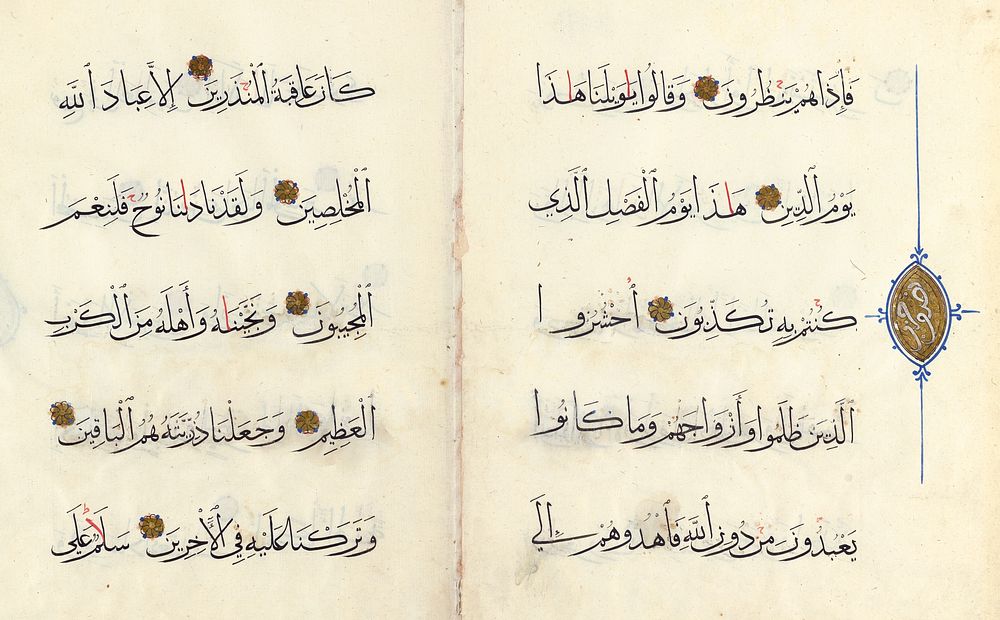 فَإِذَا هُمْ يَنظُرُونَ وَقَالُوا يَاوَيْلَنَا هَاذَا
يَوْمُ ٱلدِّينِ هَاذَا يَوْمُ ٱلْفَصْلِ ٱلَّذِي
كُنتُمْ بِهِ تُكَذِّبُونَ ٱحْشُرُوا
ٱلَّذِينَ ظَلَمُوا وَأَزْوَاجَهُمْ وَمَا كَانُوا
يَعْبُدُونَ مِن دُونِ ٱللَّهِ فَٱهْدُوهُمْ إِلَى
كَانَ عَاقِبَةُ ٱلْمُنذَرِينَ إِلَّا عِبَادَ ٱللَّهِ
ٱلْمُخْلَصِينَ وَلَقَدْ نَادَانَا نُوحٌ فَلَنِعْمَ
ٱلْمُجِيبُونَ وَنَجَّيْنَاهُ وَأَهْلَهُ مِنَ ٱلْكَرْبِ
ٱلْعَظِيمِ وَجَعَلْنَا ذُرِّيَّتَهُ هُمُ ٱلْبَاقِينَ
وَتَرَكْنَا عَلَيْهِ فِي ٱلْأَخِرِينَ سَلَامٌ عَلَى